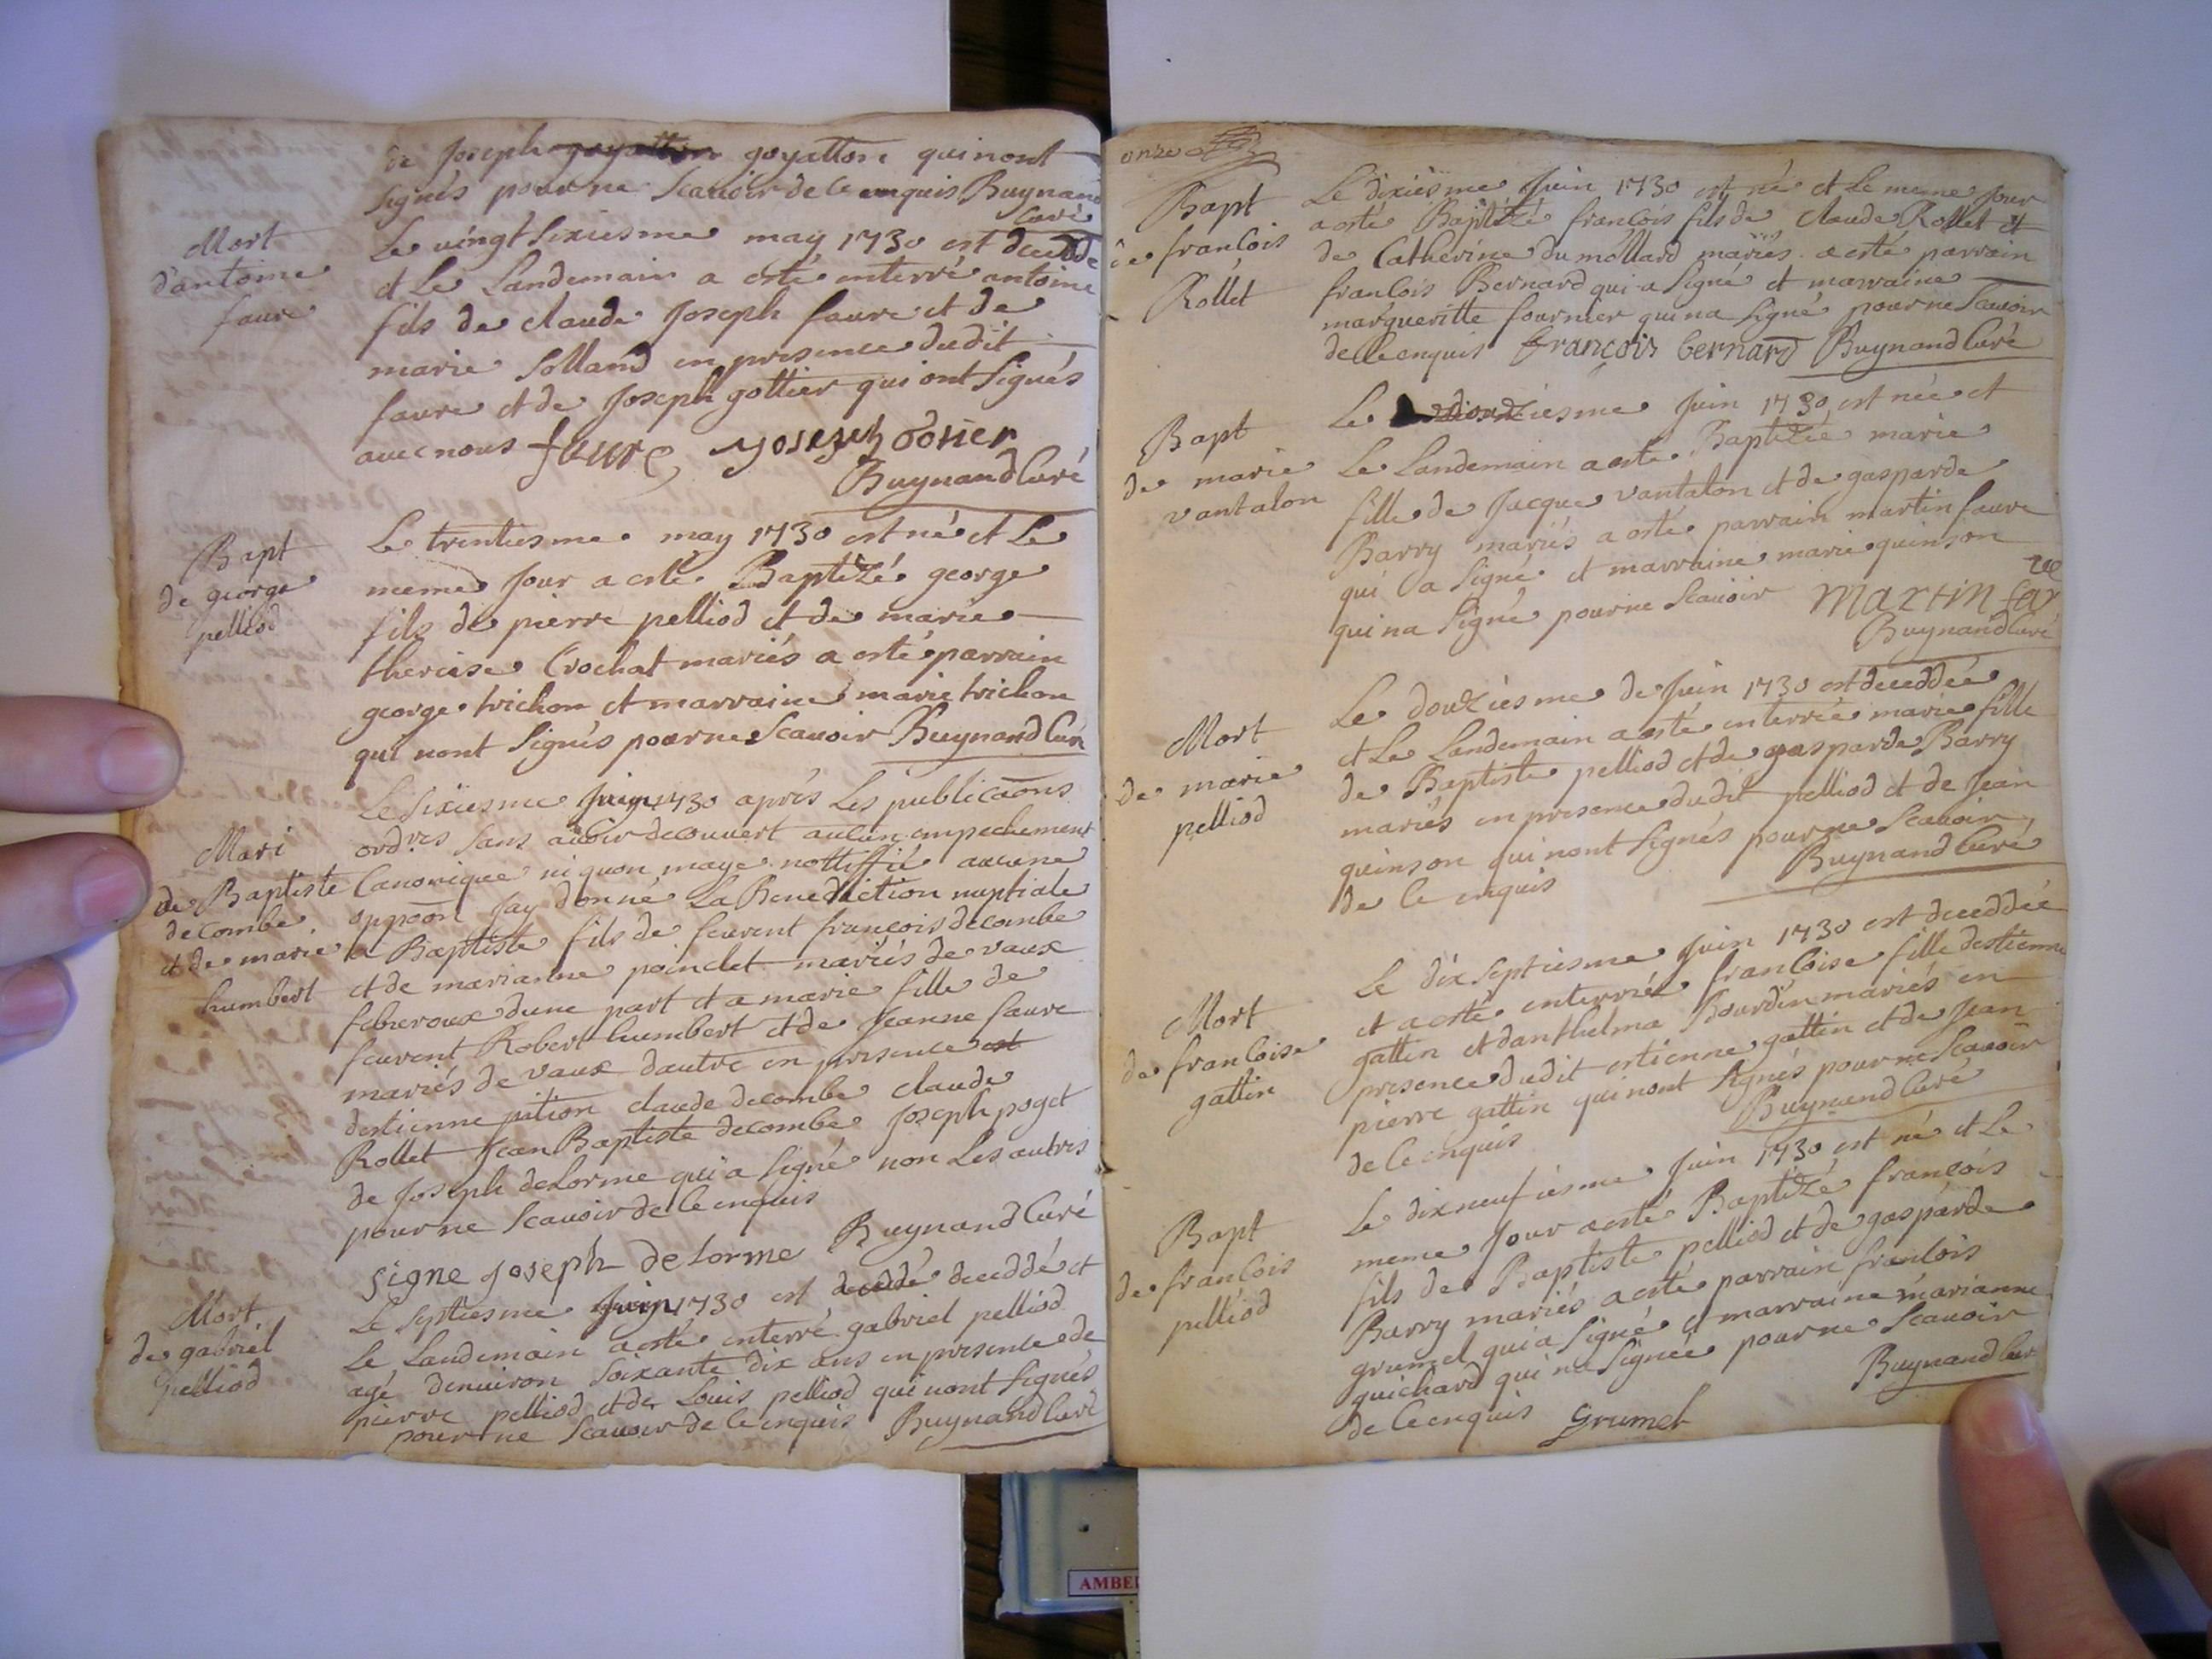 de Joseph goyatton goyatton qui nont
signés pour ne scauoir de ce enquis Buynand
Curé
Mort
dantoine
faure
Le vingt sixiesme may 1730 est decede
et Le Landemain a esté enterré antoine
fils de claude Joseph faure et de
marie Solland en presence dudit
faure et de Joseph gottier qui ont signés
auec nous faure Joseph
Buynand Curé
Bapt
de george
pelliod
Le trentiesme may 1730 est né et Le
meme Jour a esté Baptizé george
fils de pierre pelliod et de marie
therese Crochat mariés a esté parrain
george trichon et marraine marie trichon
qui nont signés pour ne scauoir Buynand Curé
Mari
de Baptiste
decombe
et de marie
humbert
Le sixiesme Juin 1730 aprés Les publicaons
ordres sans auoir decouvert aucun empechement
Canonique ni quon maye nottiffié aucune
oppoon Jay donné La Benediction nuptiale
a Baptiste fils de feurent françois decombe
et de marianne poinclet mariés de vaux
febvroux dune part et a marie fille de
feurent Robert humbert et de Jeanne faure
mariés de vaux dautre en presence est
destienne pition claude decombe claude
Rollet Jean Baptiste decombe Joseph poget
de Joseph delorme qui a signé non Les autres
pour ne scauoir de ce enquis
signe Joseph delorme Buynand Curé
Mort
de gabriel
pelliod
Le septiesme Juin 1730 est decedé deceddé et
Le Landemain a esté enterré gabriel pelliod
agé denuiron soixante dix ans en presence de
pierre pelliod et de Louis pelliod qui nont signés
pour ne scauoir de ce enquis Buynand Curé
onze
Bapt
de francois
Rollet
Le dixiesme Juin 1730 est né et Le meme Jour
a esté Baptizé francois fils de claude Rollet et
de Catherine dumollard mariés a esté parrain
francois Bernard qui a signé et marraine
margueritte fournier qui na signé pour ne scauoir
de ce enquis francois bernard Buynand Curé
Bapt
de marie
vantalon
Le douziesme Juin 1730 est née et
Le Landemain a esté Baptizée marie
fille de Jacque vantalon et de gasparde
Barry mariés a esté parrain martin faure
qui a signé et marraine marie quinson
qui na signé pour ne scauoir martin fav
re
Buynand Curé
Mort
de marie
pelliod
Le douziesme de Juin 1730 est deceddée
et Le Landemain a esté enterrée marie fille
de Baptiste pelliod et de gasparde Barry
mariés en presence dudit pelliod et de Jean
quinson qui nont signés pour ne scauoir
de ce enquis
Buynand Curé
Mort
de francoise
gattin
Le dix septiesme Juin 1730 est deceddée
et a esté enterrée francoise fille destienne
gattin et danthelma Bourdin mariés en
presence dudit estienne gattin et de Jean
pierre gattin qui nont signés pour ne scauoir
de ce enquis
Buynand Curé
Bapt
de francois
pelliod
Le dixneufiesme Juin 1730 est né et Le
meme Jour a esté Baptizé francois
fils de Baptiste pelliod et de gasparde
Barry mariés a esté parrain francois
grumel qui a signé et marraine marianne
guichard qui na signée pour ne scauoir
de ce enquis grumel
Buynand Cur
AMBE